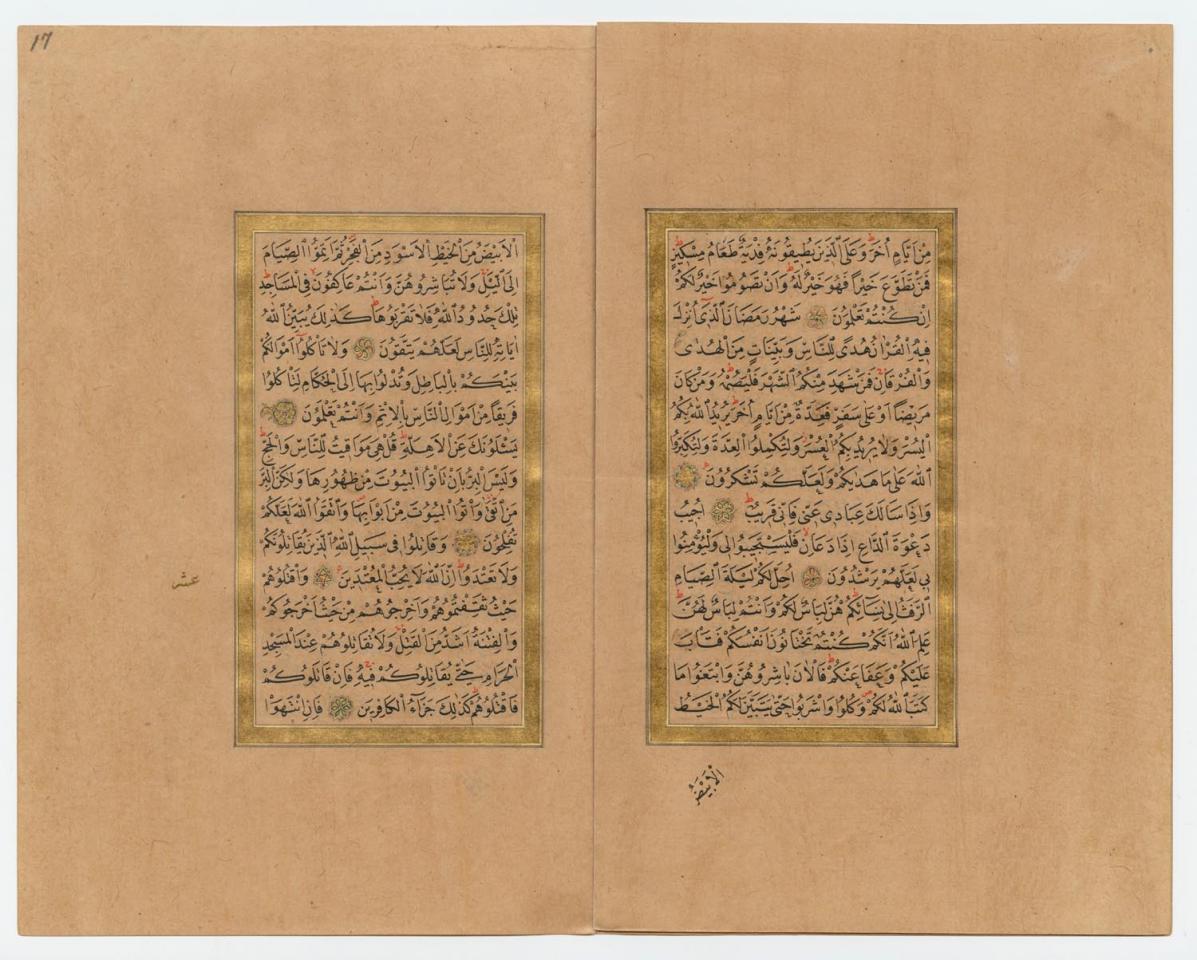 مِنْ اَيَّامٍ اُخَرَ وَعَلَى الَّذِينَ يُطِيقُونَهُ فِدْيَةٌ طَعَامُ مِسْكِينٍ
فَمَنْ تَطَوَّعَ خَيْراً فَهُوَ خَيْرٌ لَهُ وَاَنْ تَصُومُوا خَيْرٌ لَكُمْ
اِنْ كُنْتُمْ تَعْلَمُونَ شَهْرُ رَمَضَانَ الَّذِى اُنْزِلَ
فِيهِ الْقُرْاٰنُ هُدًى لِلنَّاسِ وَبَيِّنَاتٍ مِنَ الْهُدٰى
وَالْفُرْقَانِ فَمَنْ شَهِدَ مِنْكُمُ الشَّهْرَ فَلْيَصُمْهُ وَمَنْ كَانَ
مَرِيضاً اَوْ عَلٰى سَفَرٍ فَعِدَّةٌ مِنْ اَيَّامٍ اُخَرَ يُرِيدُ اللّٰهُ بِكُمُ
الْيُسْرَ وَلَا يُرِيدُ بِكُمُ الْعُسْرَ وَلِتُكْمِلُوا الْعِدَّةَ وَلِتُكَبِّرُوا
اللّٰهَ عَلٰى مَا هَدٰيكُمْ وَلَعَلَّكُمْ تَشْكُرُونَ
وَاِذَا سَاَلَكَ عِبَادِى عَنِّى فَاِنِّى قَرِيبٌ اُجِيبُ
دَعْوَةَ الدَّاعِ اِذَا دَعَانِ فَلْيَسْتَجِيبُوا لِى وَلْيُؤْمِنُوا
بِى لَعَلَّهُمْ يَرْشُدُونَ اُحِلَّ لَكُمْ لَيْلَةَ الصِّيَامِ
الرَّفَثُ اِلٰى نِسَائِكُمْ هُنَّ لِبَاسٌ لَكُمْ وَاَنْتُمْ لِبَاسٌ لَهُنَّ
عَلِمَ اللّٰهُ اَنَّكُمْ كُنْتُمْ تَخْتَانُونَ اَنْفُسَكُمْ فَتَابَ
عَلَيْكُمْ وَعَفَا عَنْكُمْ فَالْاٰنَ بَاشِرُوهُنَّ وَابْتَغُوا مَا
كَتَبَ اللّٰهُ لَكُمْ وَكُلُوا وَاشْرَبُوا حَتّٰى يَتَبَيَّنَ لَكُمُ الْخَيْطُ
الْاَبْيَضُ
17
الْاَبْيَضُ مِنَ الْخَيْطِ الْاَسْوَدِ مِنَ الْفَجْرِ ثُمَّ اَتِمُّوا الصِّيَامَ
اِلَى الَّيْلِ وَلَا تُبَاشِرُوهُنَّ وَاَنْتُمْ عَاكِفُونَ فِى الْمَسَاجِدِ
تِلْكَ حُدُودُ اللّٰهِ فَلَا تَقْرَبُوهَا كَذٰلِكَ يُبَيِّنُ اللّٰهُ
اٰيَاتِهِ لِلنَّاسِ لَعَلَّهُمْ يَتَّقُونَ وَلَا تَاْكُلُوا اَمْوَالَكُمْ
بَيْنَكُمْ بِالْبَاطِلِ وَتُدْلُوا بِهَا اِلَى الْحُكَّامِ لِتَاْكُلُوا
فَرِيقاً مِنْ اَمْوَالِ النَّاسِ بِالْاِثْمِ وَاَنْتُمْ تَعْلَمُونَ
يَسْئَلُونَكَ عَنِ الْاَهِلَّةِ قُلْ هِىَ مَوَاقِيتُ لِلنَّاسِ وَالْحَجِّ
وَلَيْسَ الْبِرُّ بِاَنْ تَاْتُوا الْبُيُوتَ مِنْ ظُهُورِهَا وَلٰكِنَّ الْبِرَّ
مَنِ اتَّقٰى وَاْتُوا الْبُيُوتَ مِنْ اَبْوَابِهَا وَاتَّقُوا اللّٰهَ لَعَلَّكُمْ
تُفْلِحُونَ وَقَاتِلُوا فِى سَبِيلِ اللّٰهِ الَّذِينَ يُقَاتِلُونَكُمْ
وَلَا تَعْتَدُوا اِنَّ اللّٰهَ لَا يُحِبُّ الْمُعْتَدِينَ وَاقْتُلُوهُمْ
حَيْثُ ثَقِفْتُمُوهُمْ وَاَخْرِجُوهُمْ مِنْ حَيْثُ اَخْرَجُوكُمْ
وَالْفِتْنَةُ اَشَدُّ مِنَ الْقَتْلِ وَلَا تُقَاتِلُوهُمْ عِنْدَ الْمَسْجِدِ
الْحَرَامِ حَتّٰى يُقَاتِلُوكُمْ فِيهِ فَاِنْ قَاتَلُوكُمْ
فَاقْتُلُوهُمْ كَذٰلِكَ جَزَاءُ الْكَافِرِينَ فَاِنِ انْتَهَوْا
عشر